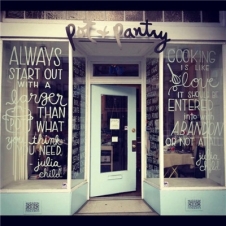 Pot + Pantry
ALWAYS
START OUT
WITH A
larger
POT THAN
WHAT
you think
U NEED.
julia
child
COOKING
IS LIKE
love
IT SHOULD BE
ENTERED
into with
ABANDON
OR NOT AT ALL
- julia
child